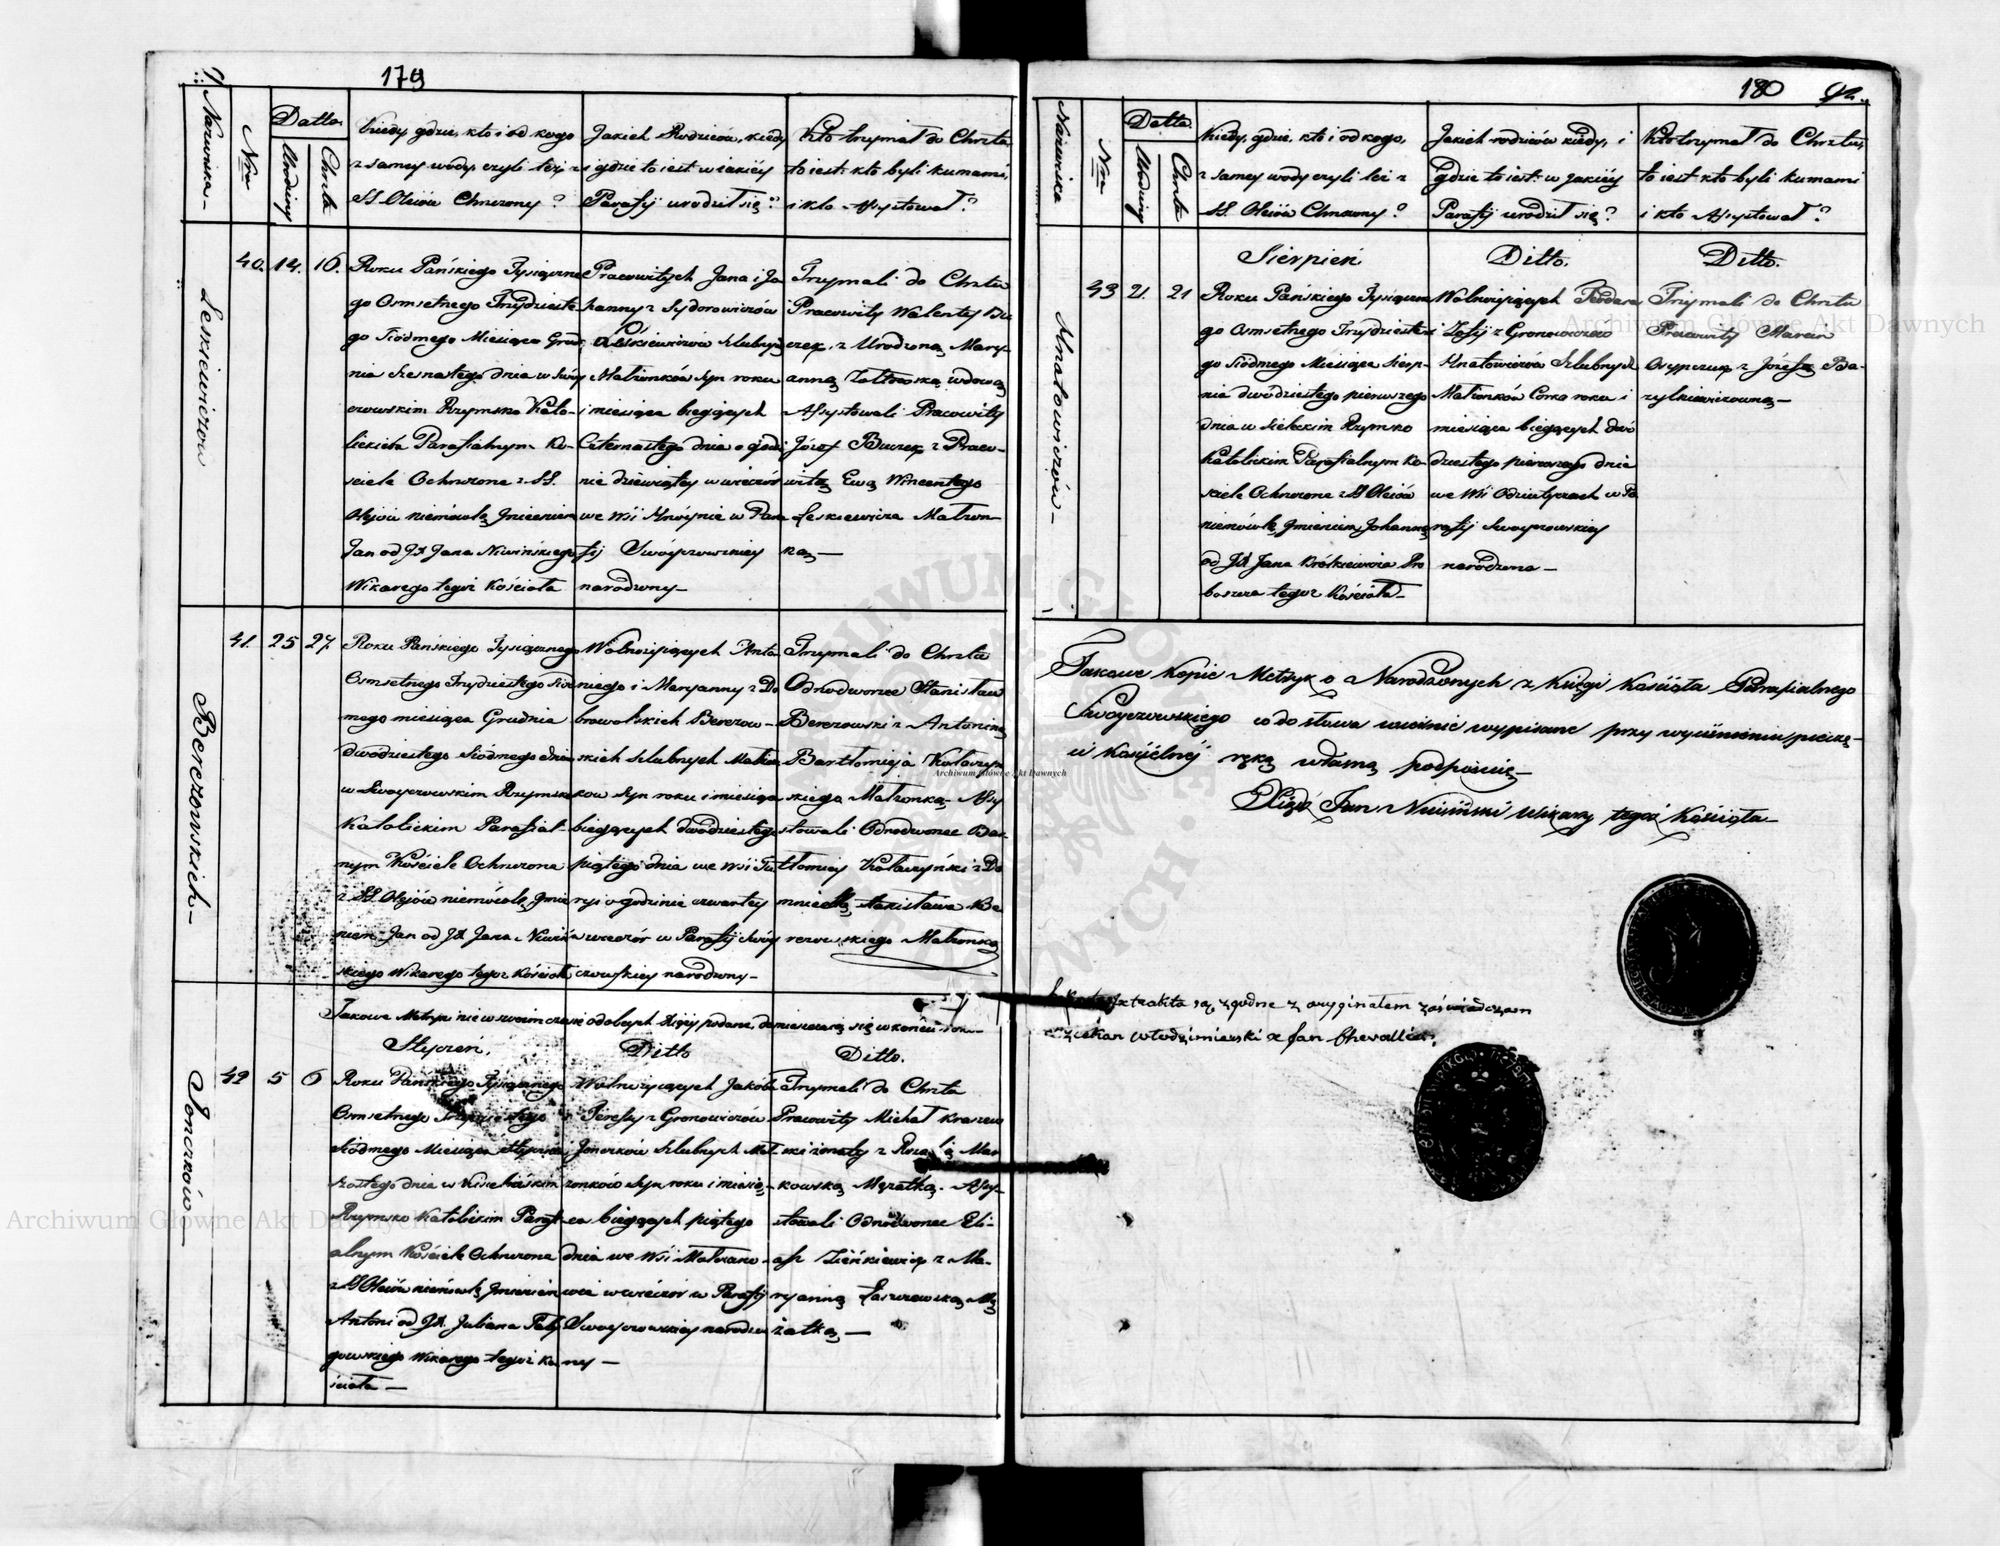 179
Nazwiska
Nro
Datta
Urodziny
Chrztu
Kiedy gdzie, kto i od kogo
z samey wody, czyli też z
SS. Oleiów Chrzczony?
Jakich Rodziców, kiedy
i gdzie to iest: w iakiéy
Parafij urodził się?
Kto trzymał do Chrztu,
to iest: kto byli kumami,
i kto Assystował?
Leskiewiczow
40. 14. 16.
Roku Pańskiego Tysiączne
go Osmsetnego Trzydzieste
go Siódmego Miesiąca Grud
nia Szesnastego dnia w Swóy
czowskim Rzymsko Kato-
lickim Parafialnym Ko-
sciele Ochrzczone z SS.
Olejów niemówlę Jmieniem
Jan od JX Jana Niwińskiego
Wikarego tegoż Kościoła
Pracowitych Jana i Jo
hanny z Sydorowiczów
Leskiewiczów Szlubnych
Małżonków Syn roku
i miesiąca bieżących
Czternastego dnia o godzi
nie dziewiątey w wieczór
we Wsi Hnóynie w Para
fij Swóyczowskiey
narodzony—
Trzymali do Chrztu
Pracowity Walenty Bu
czek, z Urodzoną Mary-
anną wdową
Assystowali Pracowity
Józef Buczek z Praco-
witą Ewą Wincentego
Leskiewicza Małżon-
ką—
Berezowskich—
41. 25 27.
Roku Pańskiego Tysiącznego
Osmsetnego Trzydziestego Siód
mego miesiąca Grudnia
dwódziestego Siódmego dnia
w Swoyczowskim Rzymsko
Katolickim Parafial-
nym Kościele Ochrzczone
z SS. Olejów niemówlę Jmie
niem Jan od JX Jana Niwiń
skiego Wikarego tegoż Kościoła
Wolnożyjących Anto
niego i Maryanny z Do
browolskich Berezow-
skich Szlubnych Małżon
kow Syn roku i miesiąca
bieżących dwódziestego
piątego dnia we Wsi
o godzinie czwartey
w wieczór w Parafij Swóy
czowskiey narodzony—
Trzymali do Chrztu
Odnodworzec Stanisław
Berezowski z Antoniną
Bartłomieja Kołaczyn
skiego Małżonką. Assy
stowali Odnodworzec Bar-
tłomiey Kołaczyński z Do
minicellą Stanisława Be
rezowskiego Małżonką
Takowe Metryki nie w swoim czasie od obcych Xięży podane, domieszczają się w końcu
Styczeń.
Ditto
Ditto.
Jonczków—
42 5 6
Roku Pańskiego Tysiącznego
Osmsetnego Trzydziestego
Siódmego Miesiąca Stycznia
Szóstego dnia w Kisielińskim
Rzymsko Katolickim Parafi
alnym Kościele Ochrzczone
z SS Oleiów niemówlę Jmieniem
Antoni od JX. Juliana
gowskiego Wikarego tegoż Ko
ścioła—
Wolnożyjących Jakóba
i Teressy z Gronowiczów
Jonczków Szlubnych Mał-
żonków Syn roku i miesią-
ca bieżących piątego
dnia we Wsi
w wieczór w Parafij
Swoyczowskiey narodzo
ny—
Trzymali do Chrztu
Pracowity Michał Kraszew
ski żonaty z Rozalią Mar
kowską Mężatką. Assy-
stowali Odnodworzec Eli-
asz Zieńkiewicz z Ma-
ryanną Laszewską Mę
żatką—
180
92.
Nazwiska
Nro
Datta
Urodziny
Chrztu
Kiedy, gdzie, kto i od kogo,
z samey wody czyli też z
SS. Oleiów Chrzczony?
Jakich rodziców kiedy, i
gdzie to iest: w jakiéy
Parafij urodził się?
Kto trzymał do Chrztu,
to iest kto byli kumami
i kto Assystował?
Sierpień
Ditto.
Ditto.
Hnatowiczów—
43 21. 21
Roku Pańskiego Tysiączne
go Osmsetnego Trzydzieste
go Siódmego Miesiąca Sierp-
nia dwódziestego pierwszego
dnia w Sieleckim Rzymsko
Katolickim Parafialnym Ko-
ściele Ochrzczone z SS Oleiów
niemówlę Jmieniem Johanna
od JX Jana Królkiewicza Pro
boszcza tegoż Kościoła—
Wolnożyjących Teodora
i Zofij z Gronowiczów
Hnatowiczów Szlubnych
Małżonków Córka roku i
miesiąca bieżących dwó
dziestego pierwszego dnia
we Wsi Odzietyczach w Pa
rafij Swoyczowskiey
narodzona—
Trzymali do Chrztu
Pracowity Marcin
Osypczuk z Józefą Ba-
zylkiewiczowną—
Takowe Kopie Metryk o Narodzonych z Księgi Kościoła Parafialnego
Swoyczowskiego co do słowa wiernie wypisane przy wyciśnieniu pieczę-
ci Kościelnéy ręką własną podpisuię—
Xiądz Jan Niwiński Wikary tegoż Kościoła—
extrakta są zgodne z oryginałem zaświadczam
Dziekan Włodzimierski X Jan Chevallier.
Archiwum Główne Akt Dawnych
Archiwum Główne Akt Dawnych
Archiwum Główne Akt Dawnych